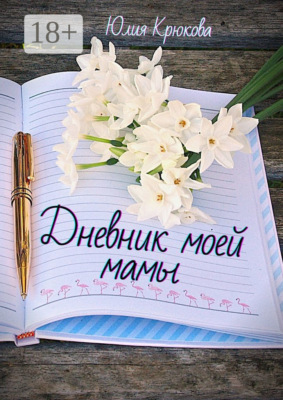 18+
Юлия Крюкова
Дневник моей
мамы